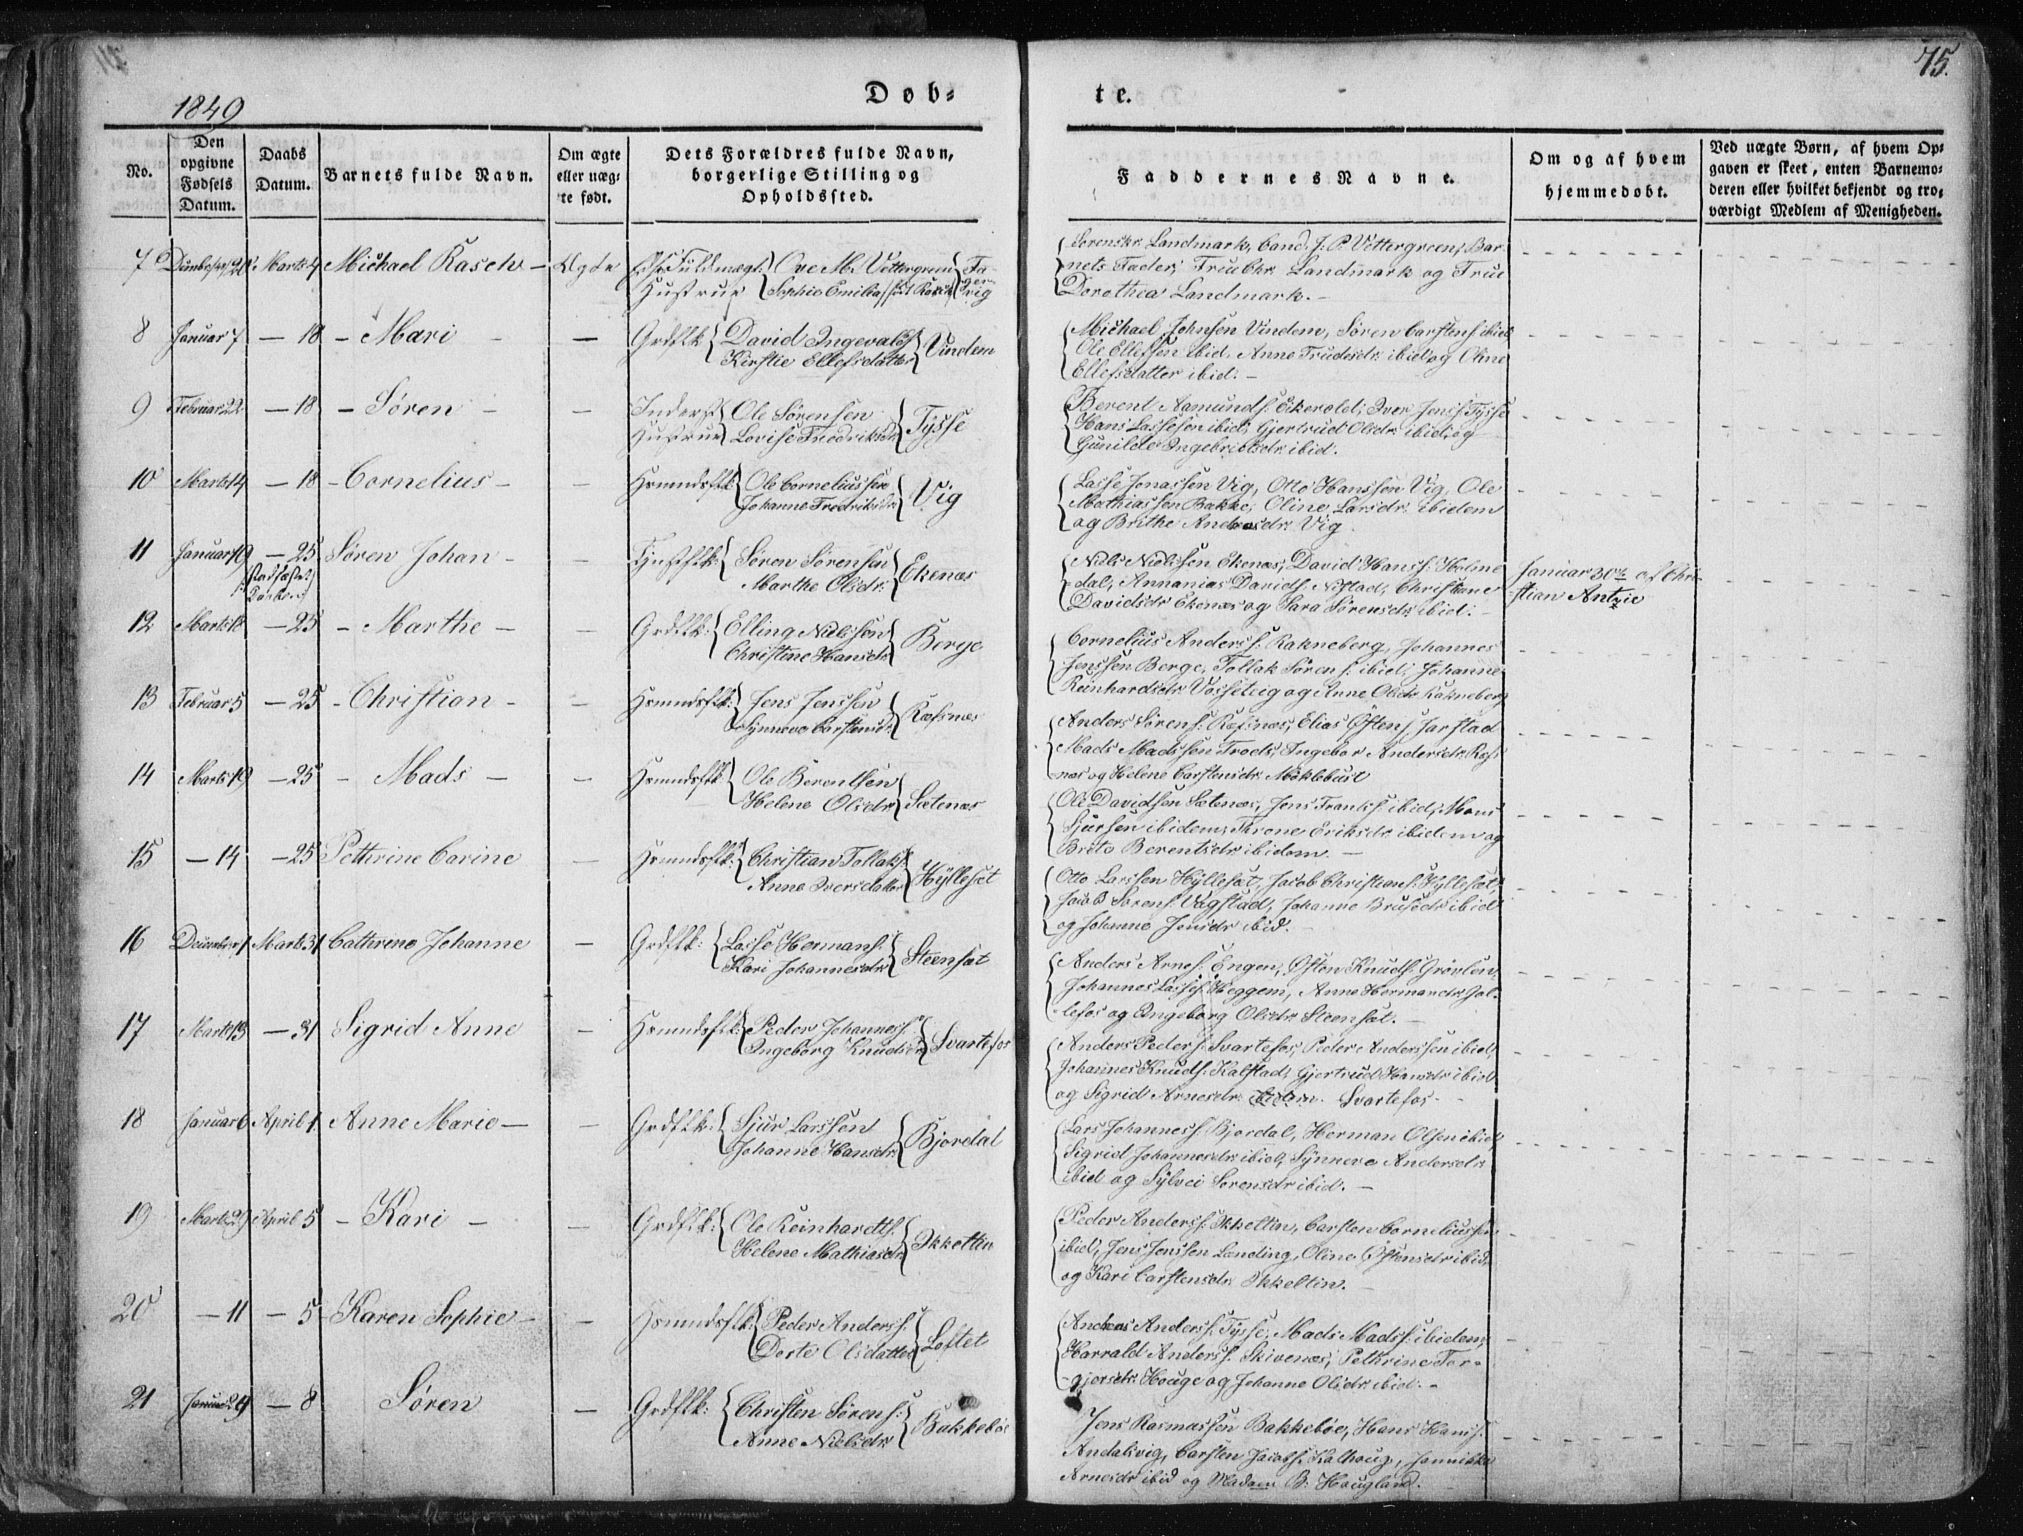 75.
1849
Døb-
te.
No.
Den opgivne Fødsels Datum.
Daabs Datum.
Barnets fulde Navn.
Om ægte eller uægte født.
Dets Forældres fulde Navn, borgerlige Stilling og Opholdssted.
Faddernes Navne.
Om og af hvem hjemmedøbt.
Ved uægte Børn, af hvem Opgaven er skeet, enten Barnemoderen eller hvilket bekjendt og troværdigt Medlem af Menigheden.
7 Marts 4 Michael Rasch - Ægte
Ove M. Vettergreen
Hustrue Sophie Emilie
Sorenskr. Landmark, Cand. J. P. Vettergreen, Bar-
nets Fader, Frue Chr. Landmark og Frue
Dorothea Landmark. -
8 Januar 7 - 18 - Mari - - Grdflk: David Ingevalds.
Kirstie Ellefsdatter Vindem
Michael Johnsen Vindem, Søren Carstens. ibid.
Ole Ellefsen ibid. Anne Frudesdr. ibid. og Oline
Ellefsdatter ibid: -
9 Februar 22 - 18 - Søren - - Inderst Ole Sørensen
Hustrue Lovise Fredriksdr. Tysse
Berent Aamunds. Eikevold, Iver Jens. Tysse
Hans Lassesen ibid, Gjertrud Olsdr. ibid. og
Gunilde Ingebrigtsdr. ibid.
10 Marts 14 - 18 - Cornelius - - Hsmndsflk: Ole Corneliussen
Johanne Fredriksdr. Vig
Lasse Jonassen Vig, Otto Hanssen Vig, Ole
Mathiassen Bakke, Oline Larsdr. ibidem
og Brithe Andersdr. Vig
11 Januar 19 - 25 Søren Johan - - Tjnstflk: Søren Sørensen
Marthe Olsdr. Ekenæs
Niels Nielssen Ekenæs, David Hans. Holme
dal, Annanias Davids. Nistad, Christiane
Davidsdr. Ekenæs og Sara Sørensdr. ibid: -
Januar 30te af Chri-
stian Antzie
12 Marts 18 - 25 - Marthe - - Grdflk: Elling Nielssen
Christine Hansdr. Berge
Cornelius Anders. Rakneberg, Johannes
Jenssen Berge, Tollak Søren s. ibid. Johanne
Reinhardsdr. Vosseteig og Anne Olsdr. Rakneberg
13 Februar 5 - 25 - Christian - - Hsmndsflk: Jens Jenssen
Synneve Carstensd. Ræfsnæs
Anders Sørens. Ræfsnæs, Elias Østens. Jarstad
Mads Madssen Træet, Ingebor Andersdr. Ræfs
næs og Helene Carstensdr. Møklebust
14 Marts 19 - 25 - Mads - - Hsmndsflk: Ole Berentsen
Helene Olsdr. Sætenæs
Ole Davidsen Sætenæs, Jens Franks. ibid, Mons
Sjursen ibidem, Throne Eriksdr. ibidem og
Brite Berentsdr. ibidem. -
15 - 14 - 25 Pethrine Carine - Hsmndsflk: Christian Tollaks.
Anne Iversdatter Hyllesæt
Otto Larssen Hyllesæt, Jacob Christians. Hyllesæt,
Jacob Sørens. Vagstad, Johanne Brusedr. ibid
og Johanne Jensdr. ibid. -
16 December 1 Marts 31 Cathrine Johanne - Grdflk: Lasse Hermans.
Kari Johannesdr. Steensæt
Anders Arnes. Engen, Østen Knuds. Grøvlen,
Johannes Lasses. Heggem, Anne Hermansdr. Jal-
lefos og Ingeborg Olsdr. Steensæt. -
17 Marts 13 - 31 Sigrid Anne - Hsmndsflk: Peder Johanness.
Ingeborg Knudsdr. Svartefos
Anders Peders. Svartefos, Peder Anderssen ibid,
Johannes Knuds. Kalstad, Gjertrud Hansdr. ibid
og Sigrid Arnesdr. Svartefos -
18 Januar 6 April 1 Anne Marie - - Grdflk: Sjur Larssen
Johanne Hansdr. Bjordal
Lars Johanness. Bjordal, Herman Olsen ibid,
Sigrid Johannesdr. ibid, Synneve Andersdr.
ibid og Sylvei Sørensdr. ibid. -
19 Marts 29 April 5 - Kari - - Grdflk: Ole Reinhardts.
Helene Mathiasdr. Ikkeltin
Peder Anders. Ikkeltin, Carsten Corneliussen
ibid, Jens Jenssen Lænding, Oline Østensdr. ibid,
og Kari Carstensdr. Ikkeltin.
20 - 11 - 5 Karen Sophie - - Hsmndsflk: Peder Anders.
Dorte Olsdatter Loftet
Andreas Anders. Tysse, Mads Mads. ibidem,
Harrald Anders. Skivenæs, Pethrine Tor-
gjersdr. Houge og Johanne Olsdr. ibid. -
21 Januar 29 - 8 Søren - Grdflk: Christen Sørens.
Anne Nielsdr. Bakkebøe
Jens Rasmussen Bakkebøe, Hans Hans.
Andalsvig, Carsten Jacobs. Kalhoug, Jannikke
Arnesdr. ibid og Madam B. Hougland.